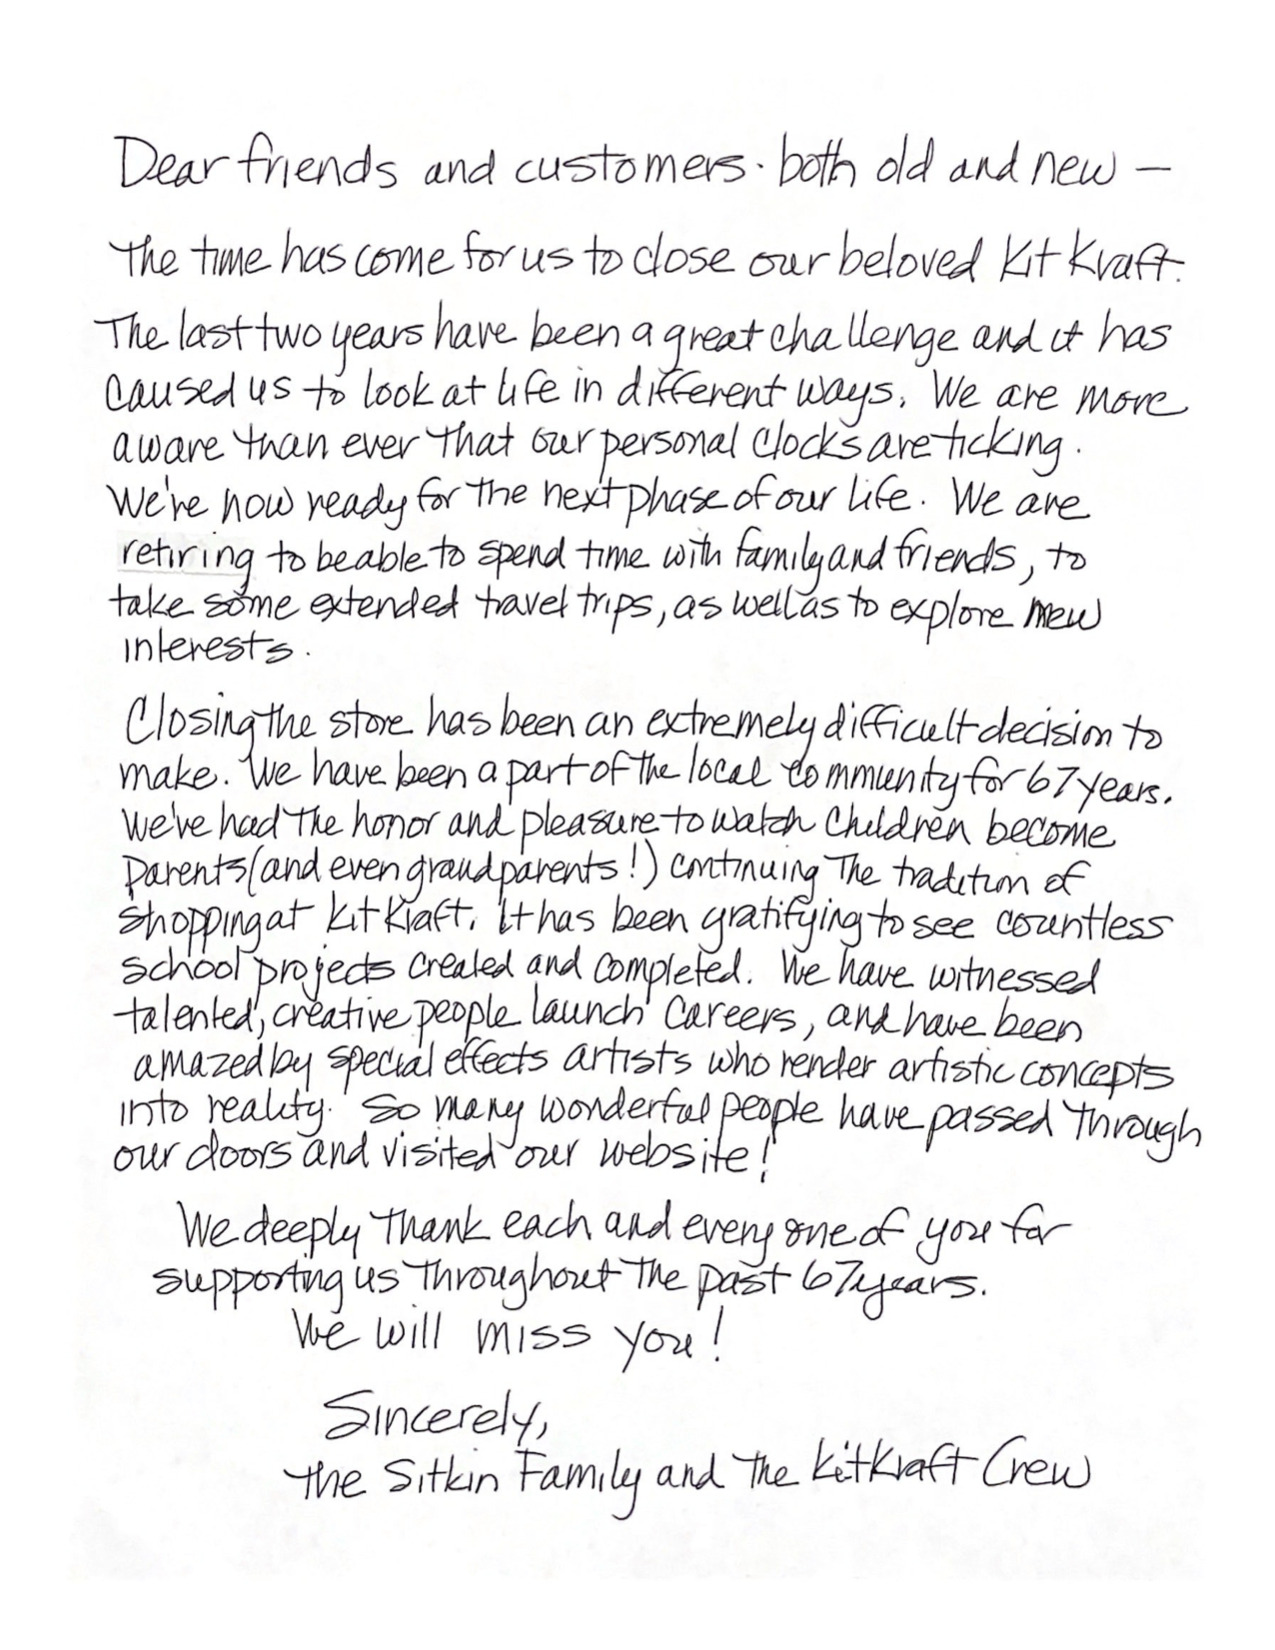 Dear friends and customers · both old and new —
The time has come for us to close our beloved Kit Kraft.
The last two years have been a great challenge and it has
caused us to look at life in different ways. We are more
aware than ever that our personal clocks are ticking.
We're now ready for the next phase of our life. We are
retiring to be able to spend time with family and friends, to
take some extended travel trips, as well as to explore new
interests.
Closing the store has been an extremely difficult decision to
make. We have been a part of the local community for 67 years.
We've had the honor and pleasure to watch children become
parents (and even grandparents!) continuing the tradition of
shopping at Kit Kraft. It has been gratifying to see countless
school projects created and completed. We have witnessed
talented, creative people launch careers, and have been
amazed by special effects artists who render artistic concepts
into reality. So many wonderful people have passed through
our doors and visited our website!
We deeply thank each and every one of you for
supporting us throughout the past 67 years.
We will miss you!
Sincerely,
The Sitkin Family and the Kit Kraft Crew